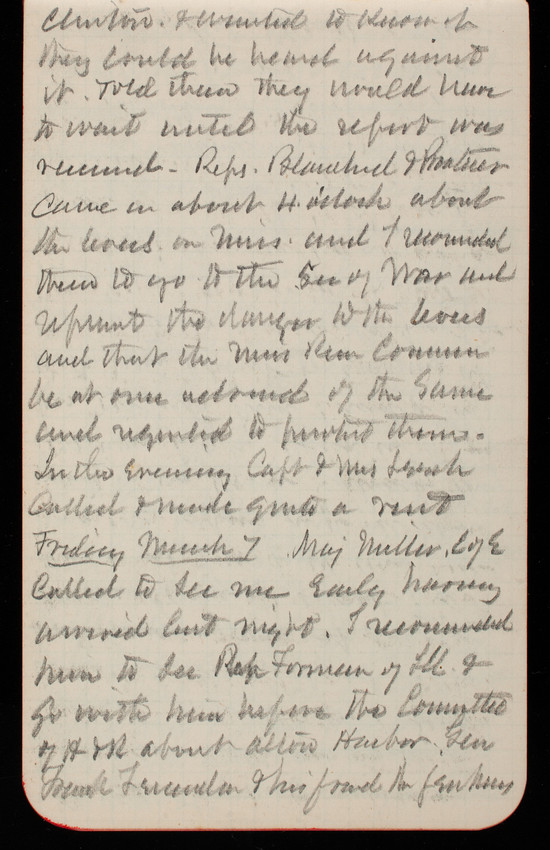 Clinton. & wanted to know if
they could be heard against
it. Told them they would have
to wait until the report was
received - Reps. Blanchard &
Came in about 4 o'clock about
the levees on Miss. and I recommended
them to go to the Sec of War and
represent the danger to the levees
and that the Miss River Commn
be at once advised of the same
and requested to protect them.
In the Evening Capt & Mrs
Called & made quite a visit
Friday March 7 Maj Miller, C of E
Called to see me Early having
arrived last night. I recommended
him to see Rep Forman of Ill. &
go with him before the Committee
of R & H about Alton Harbor. Gen
& his friend Mr